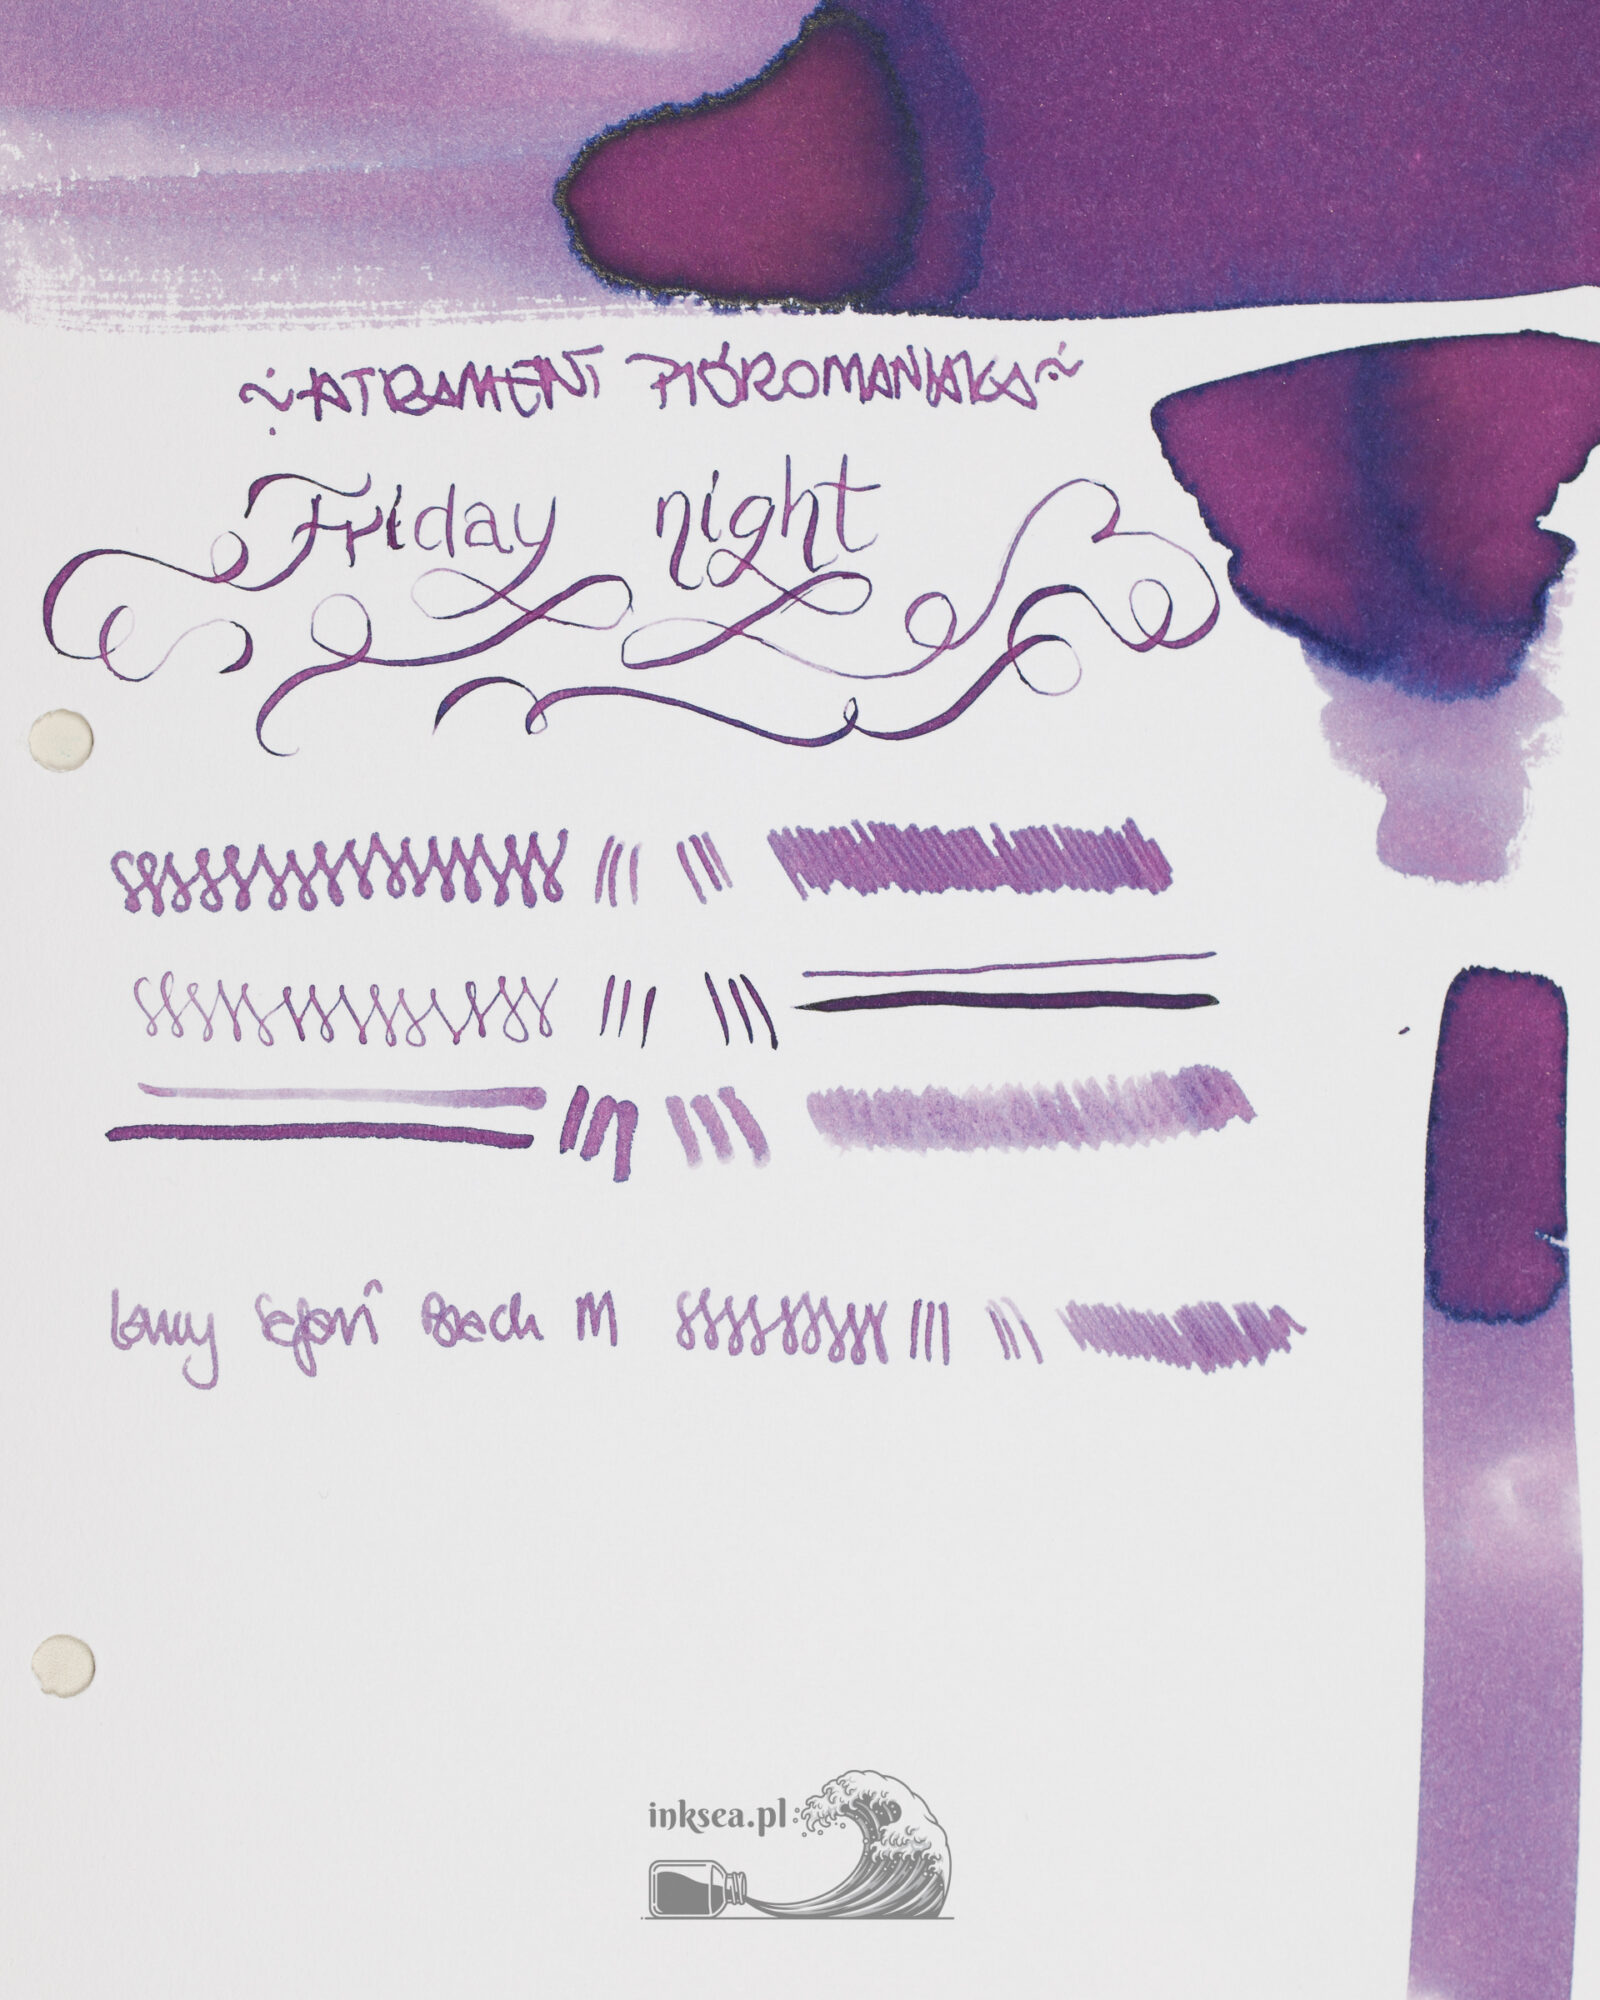 ~ATRAMENT PIÓROMANIAKA~
Friday night
Lamy Safari Beach M
inksea.pl